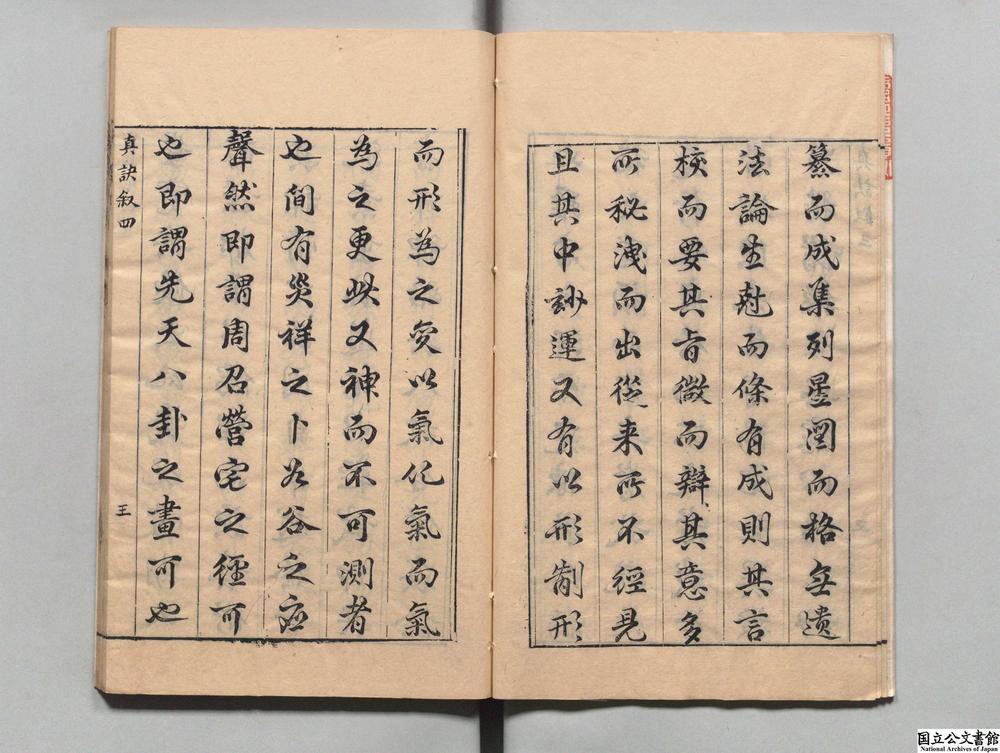 纂而成集列星圖而格無遺
法論生尅而條有成則其言
核而要其旨微而辯其意多
所秘洩而出從来所不經見
且其中玅運又有以形制形
而形為之変以氣化氣而氣
為之更此又神而不可測者
也間有災祥之卜若谷之应
聲然即謂周召營宅之經可
也即謂先天八卦之畫可也
真訣叙四
王
国立公文書館
National Archives of Japan